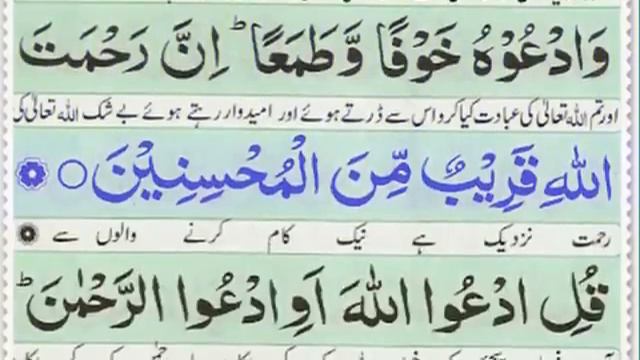 وَادْعُوْهُ خَوْفًا وَّطَمَعًا ؕ اِنَّ رَحْمَتَ
اور تم اللہ تعالیٰ کی عبادت کیا کرو اس سے ڈرتے ہوئے اور امیدوار رہتے ہوئے بے شک اللہ تعالیٰ کی
اللهِ قَرِيْبٌ مِّنَ الْمُحْسِنِيْنَ ○
رحمت نزدیک ہے نیک کام کرنے والوں سے
قُلِ ادْعُوا اللهَ اَوِ ادْعُوا الرَّحْمٰنَ ؕ